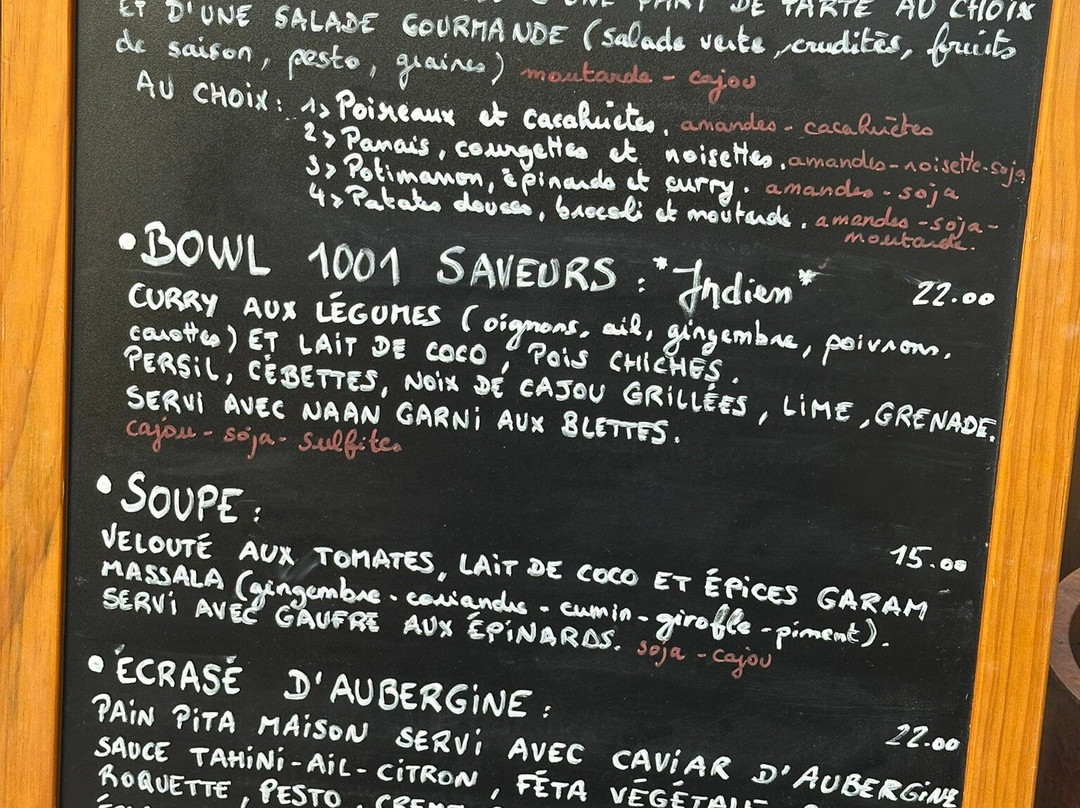 PART DE TARTE AU CHOIX
ET D'UNE SALADE GOURMANDE (salade verte, crudités, fruits
de saison, pesto, graines) moutarde - cajou
AU CHOIX : 1> Poireaux et cacahuètes. amandes - cacahuètes
2> Panais, courgettes et noisettes. amandes-noisette-soja
3> Potimarron, épinards et curry. amandes - soja
4> Patates douces, brocoli et moutarde. amandes -soja-
moutarde.
• BOWL 1001 SAVEURS : *Indien* 22.00
CURRY AUX LÉGUMES (oignons, ail, gingembre, poivrons,
carottes) ET LAIT DE COCO, POIS CHICHES.
PERSIL, CÉBETTES, NOIX DE CAJOU GRILLÉES, LIME, GRENADE.
SERVI AVEC NAAN GARNI AUX BLETTES.
cajou - soja - sulfites
• SOUPE : 15.00
VELOUTÉ AUX TOMATES, LAIT DE COCO ET ÉPICES GARAM
MASSALA (gingembre - coriandre - cumin - girofle - piment).
SERVI AVEC GAUFRE AUX ÉPINARDS. soja - cajou
• ÉCRASÉ D'AUBERGINE : 22.00
PAIN PITA MAISON SERVI AVEC CAVIAR D'AUBERGINE
SAUCE TAHINI-AIL-CITRON, FÉTA VÉGÉTALE
ROQUETTE, PESTO,